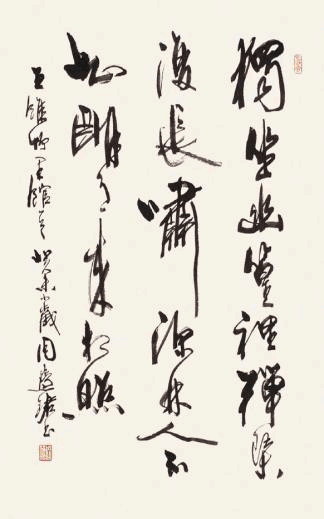 獨坐幽篁裡彈琴
復長嘯深林人不
知明月來相照
王維竹里館 歲周慧珺书